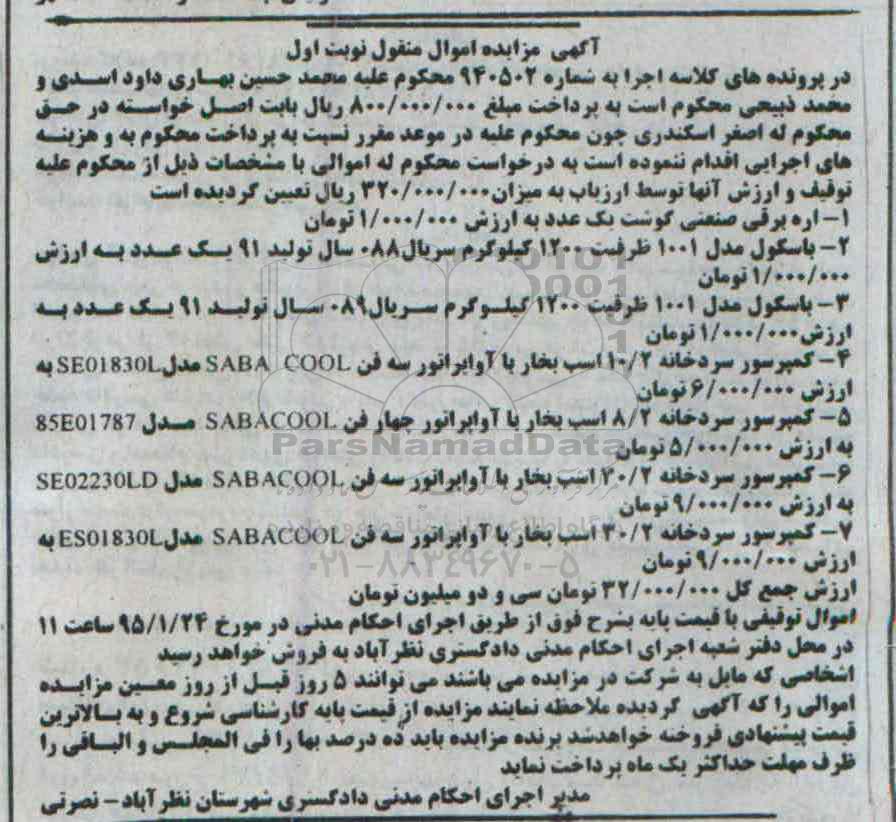 آگهی مزایده اموال منقول نوبت اول
در پرونده های کلاسه اجرا به شماره ۹۴۰۵۰۲ محکوم علیه محمد حسین بهاری داود اسدی و
محمد ذبیحی محکوم است به پرداخت مبلغ ۸۰۰/۰۰۰/۰۰۰ ریال بابت اصل خواسته در حق
محکوم له اصغر اسکندری چون محکوم علیه در موعد مقرر نسبت به پرداخت محکوم به و هزینه
های اجرایی اقدام ننموده است به درخواست محکوم له اموالی با مشخصات ذیل از محکوم علیه
توقیف و ارزش آنها توسط ارزیاب به میزان ۳۲۰/۰۰۰/۰۰۰ ریال تعیین گردیده است
۱- اره برقی صنعتی گوشت یک عدد به ارزش ۱/۰۰۰/۰۰۰ تومان
۲- باسکول مدل ۱۰۰۱ ظرفیت ۱۲۰۰ کیلوگرم سریال ۰۸۸ سال تولید ۹۱ یک عدد به ارزش
۱/۰۰۰/۰۰۰ تومان
۳- باسکول مدل ۱۰۰۱ ظرفیت ۱۲۰۰ کیلوگرم سریال ۰۸۹ سال تولید ۹۱ یک عدد به
ارزش ۱/۰۰۰/۰۰۰ تومان
۴- کمپرسور سردخانه ۱۰/۲ اسب بخار با آواپراتور سه فن SABA COOL مدل SE01830L به
ارزش ۶/۰۰۰/۰۰۰ تومان
۵- کمپرسور سردخانه ۸/۲ اسب بخار با آواپراتور چهار فن SABACOOL مدل 85E01787
به ارزش ۵/۰۰۰/۰۰۰ تومان
ParsNamadData
۶- کمپرسور سردخانه ۳۰/۲ اسب بخار با آواپراتور سه فن SABACOOL مدل SE02230LD
به ارزش ۹/۰۰۰/۰۰۰ تومان
۷- کمپرسور سردخانه ۳۰/۲ اسب بخار با آواپراتور سه فن SABACOOL مدل ES01830L به
ارزش ۹/۰۰۰/۰۰۰ تومان
۰۲۱-۸۸۳۴۹۶۷۰-۵
ارزش جمع کل ۳۲/۰۰۰/۰۰۰ تومان سی و دو میلیون تومان
اموال توقیفی با قیمت پایه بشرح فوق از طریق اجرای احکام مدنی در مورخ ۹۵/۱/۲۴ ساعت ۱۱
در محل دفتر شعبه اجرای احکام مدنی دادگستری نظر آباد به فروش خواهد رسید
اشخاصی که مایل به شرکت در مزایده می باشند می توانند ۵ روز قبل از روز معین مزایده
اموالی را که آگهی گردیده ملاحظه نمایند مزایده از قیمت پایه کارشناسی شروع و به بالاترین
قیمت پیشنهادی فروخته خواهدشد برنده مزایده باید ده درصد بها را فی المجلس و الباقی را
ظرف مهلت حداکثر یک ماه پرداخت نماید
مدیر اجرای احکام مدنی دادگستری شهرستان نظر آباد - نصرتی